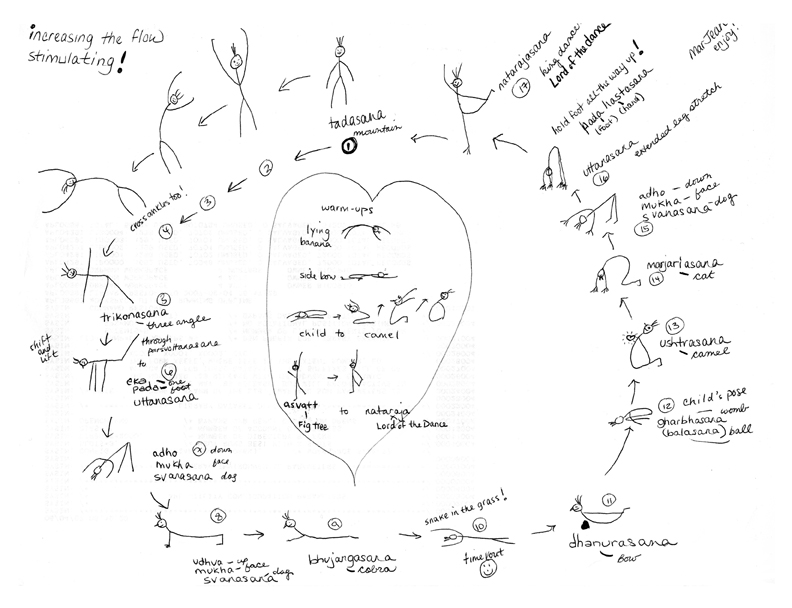 increasing the flow
stimulating!
tadasana
mountain
1
2
3
4
cross ankles too!
5
trikonasana
three angle
shift
and
lift
through
parsvottanasana
to
6
eka - one
pada - foot
uttanasana
7
adho down
mukha face
svanasana dog
8
udhva - up
mukha - face
svanasana - dog
9
bhujangasana
cobra
snake in the grass!
10
time out
11
dhanurasana
bow
12 child's pose
gharbhasana womb
(balasana) ball
13
ushtrasana
camel
marjariasana
14 cat
adho - down
mukha - face
svanasana - dog
15
uttanasana extended leg stretch
16
hold foot all the way up!
pada hastasana
(foot) (hand)
natarajasana
king dancer
Lord of the dance
17
MarJean
enjoy!
warm-ups
lying
banana
side bow
child to camel
asvatt to nataraja
Fig tree Lord of the Dance